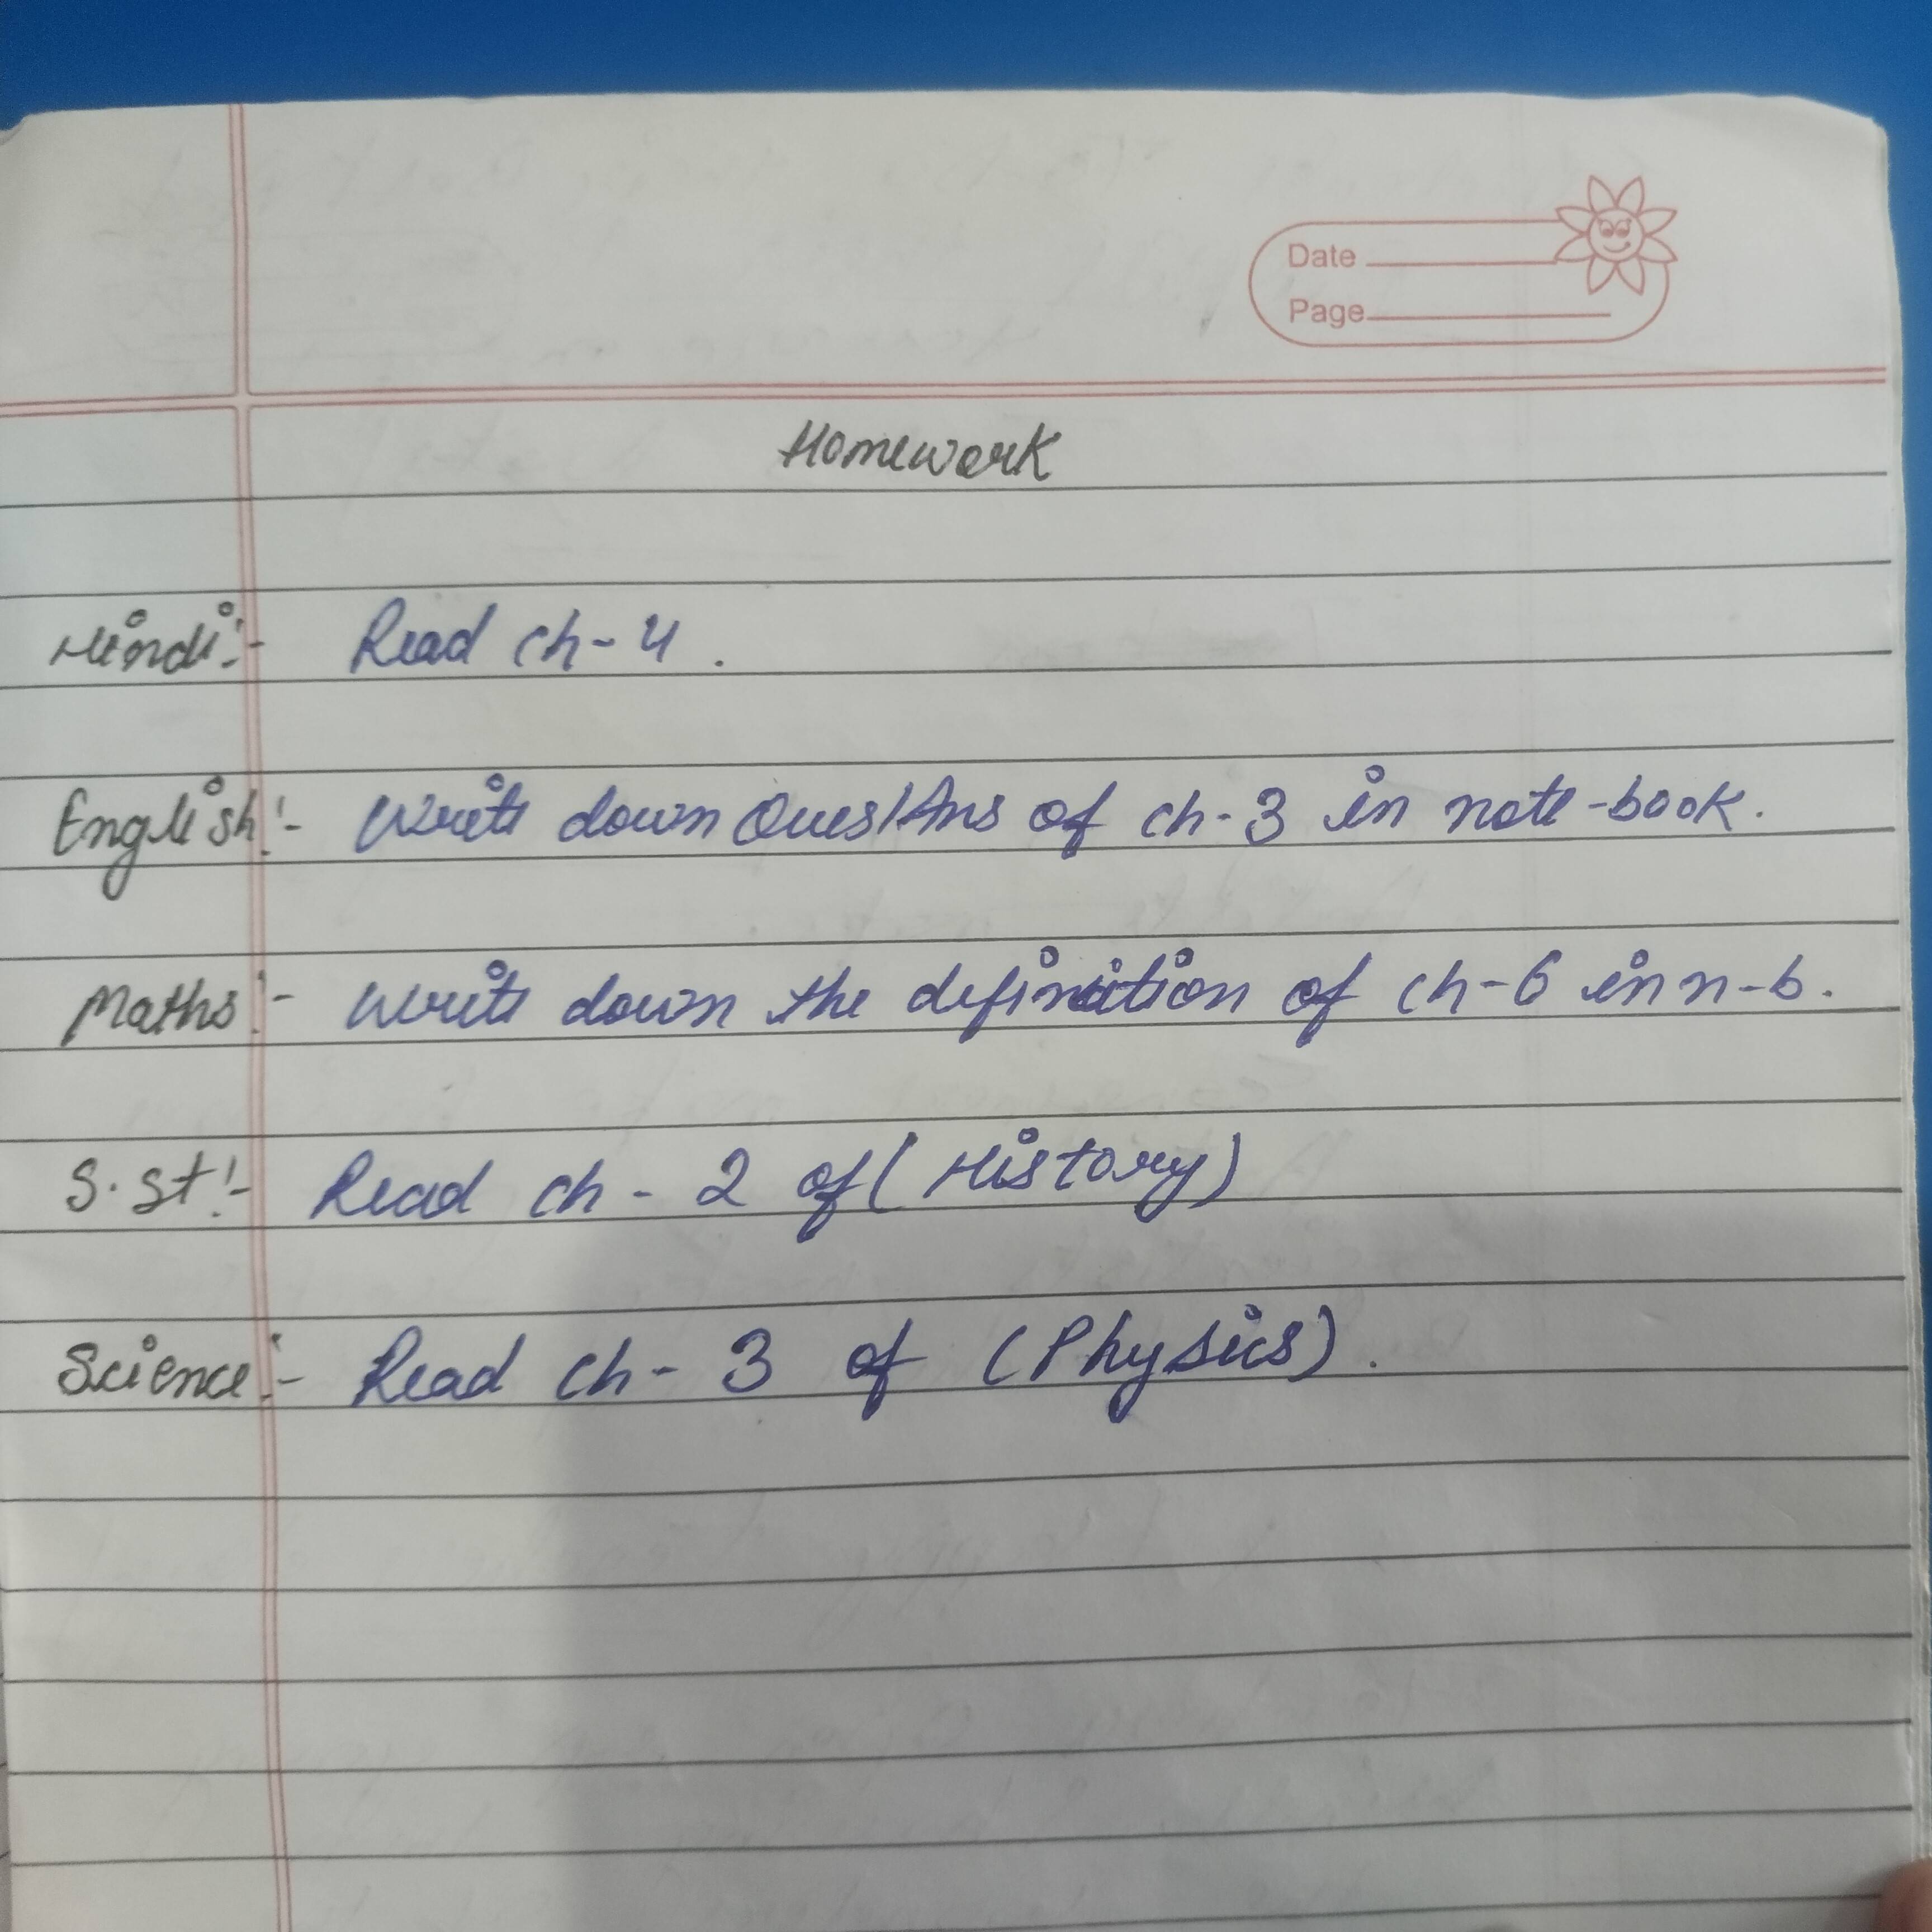 Date
Page
Homework
Hindi:- Read ch-4.
English:- Write down Ques/Ans of ch-3 in note-book.
Maths:- Write down the definition of ch-6 in n-b.
S.st:- Read ch-2 of (History)
Science:- Read ch-3 of (Physics).